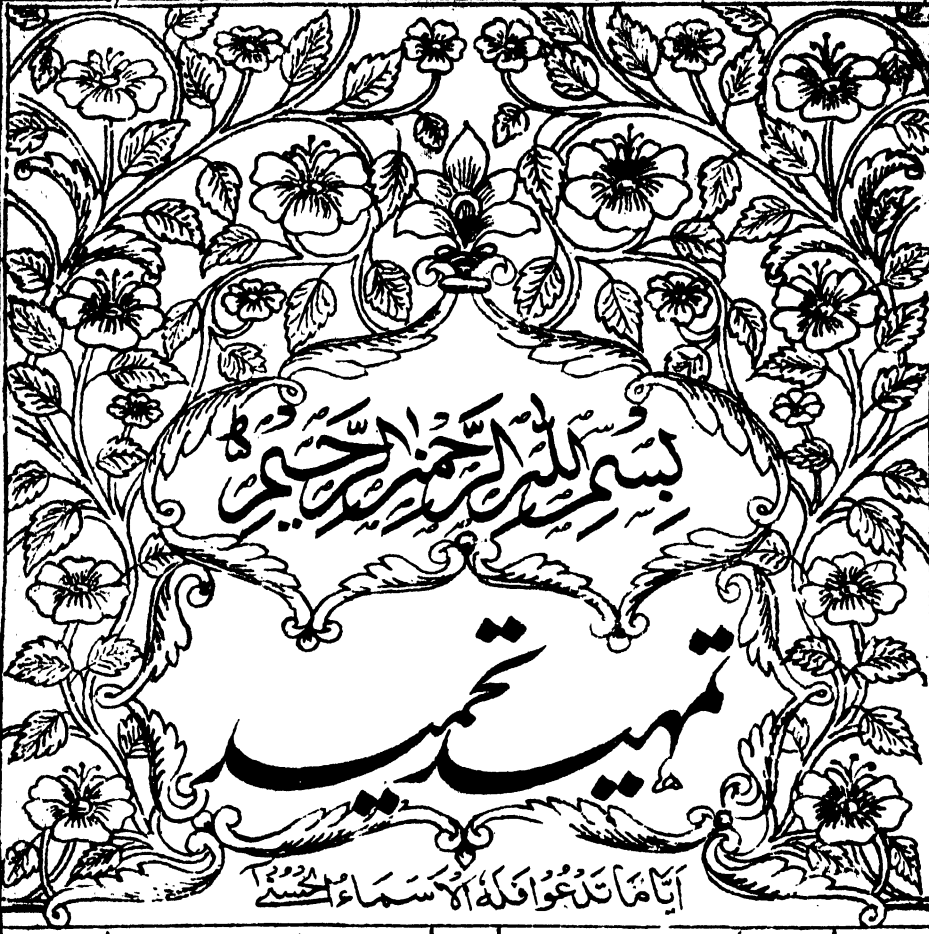 بِسْمِ اللهِ الرَّحْمٰنِ الرَّحِيْمِ
تمہید تحمید
اَيًّا مَا تَدْعُوْا فَلَهُ الْاَسْمَاءُ الْحُسْنٰى